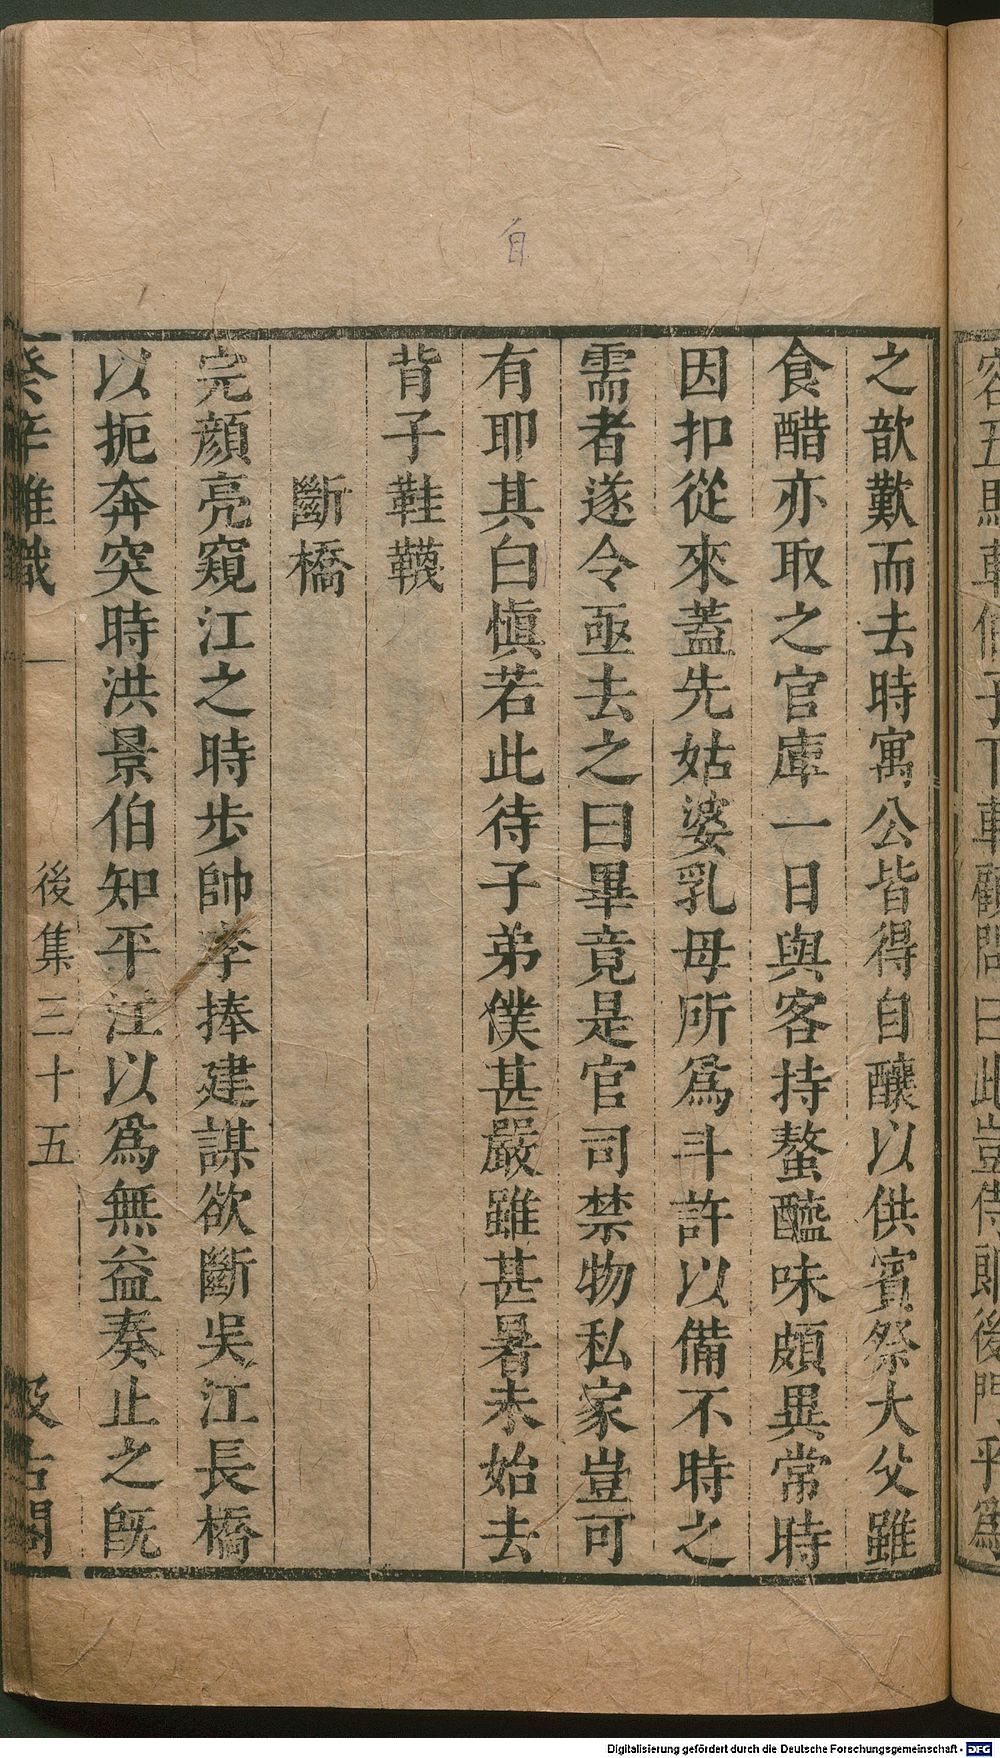 容五馬車備子下車顧問曰此豈侍郎後門乎爲
自
之歆歎而去時寓公皆得自釀以供賓祭大父雖
食醋亦取之官庫一日與客持螯醯味頗異常時
因扣從來蓋先姑婆乳母所爲斗許以備不時之
需者遂令亟去之曰畢竟是官司禁物私家豈可
有耶其自慎若此待子弟僕甚嚴雖甚暑未始去
背子鞋韈
斷橋
完顔亮窺江之時步帥李捧建謀欲斷吳江長橋
以扼奔突時洪景伯知平江以爲無益奏止之旣
癸辛雜識 後集三十五 汲古閣
Digitalisierung gefördert durch die Deutsche Forschungsgemeinschaft - DFG